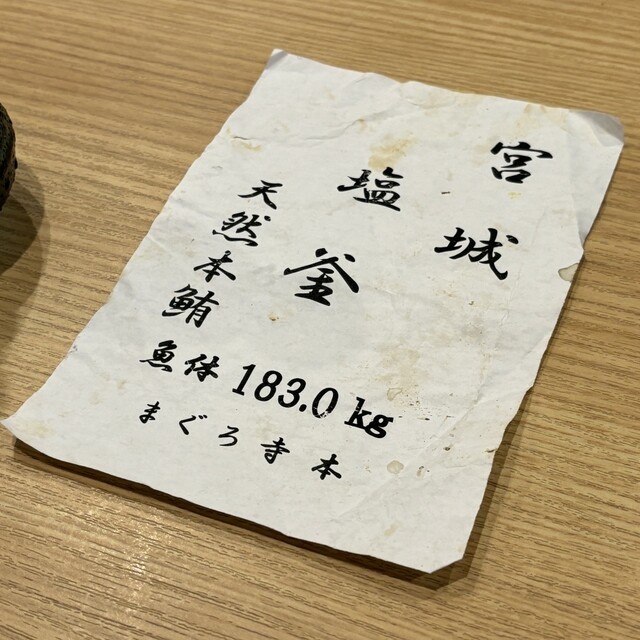 宮城
塩釜
天然本鮪
魚体 183.0kg
まぐろ寺本